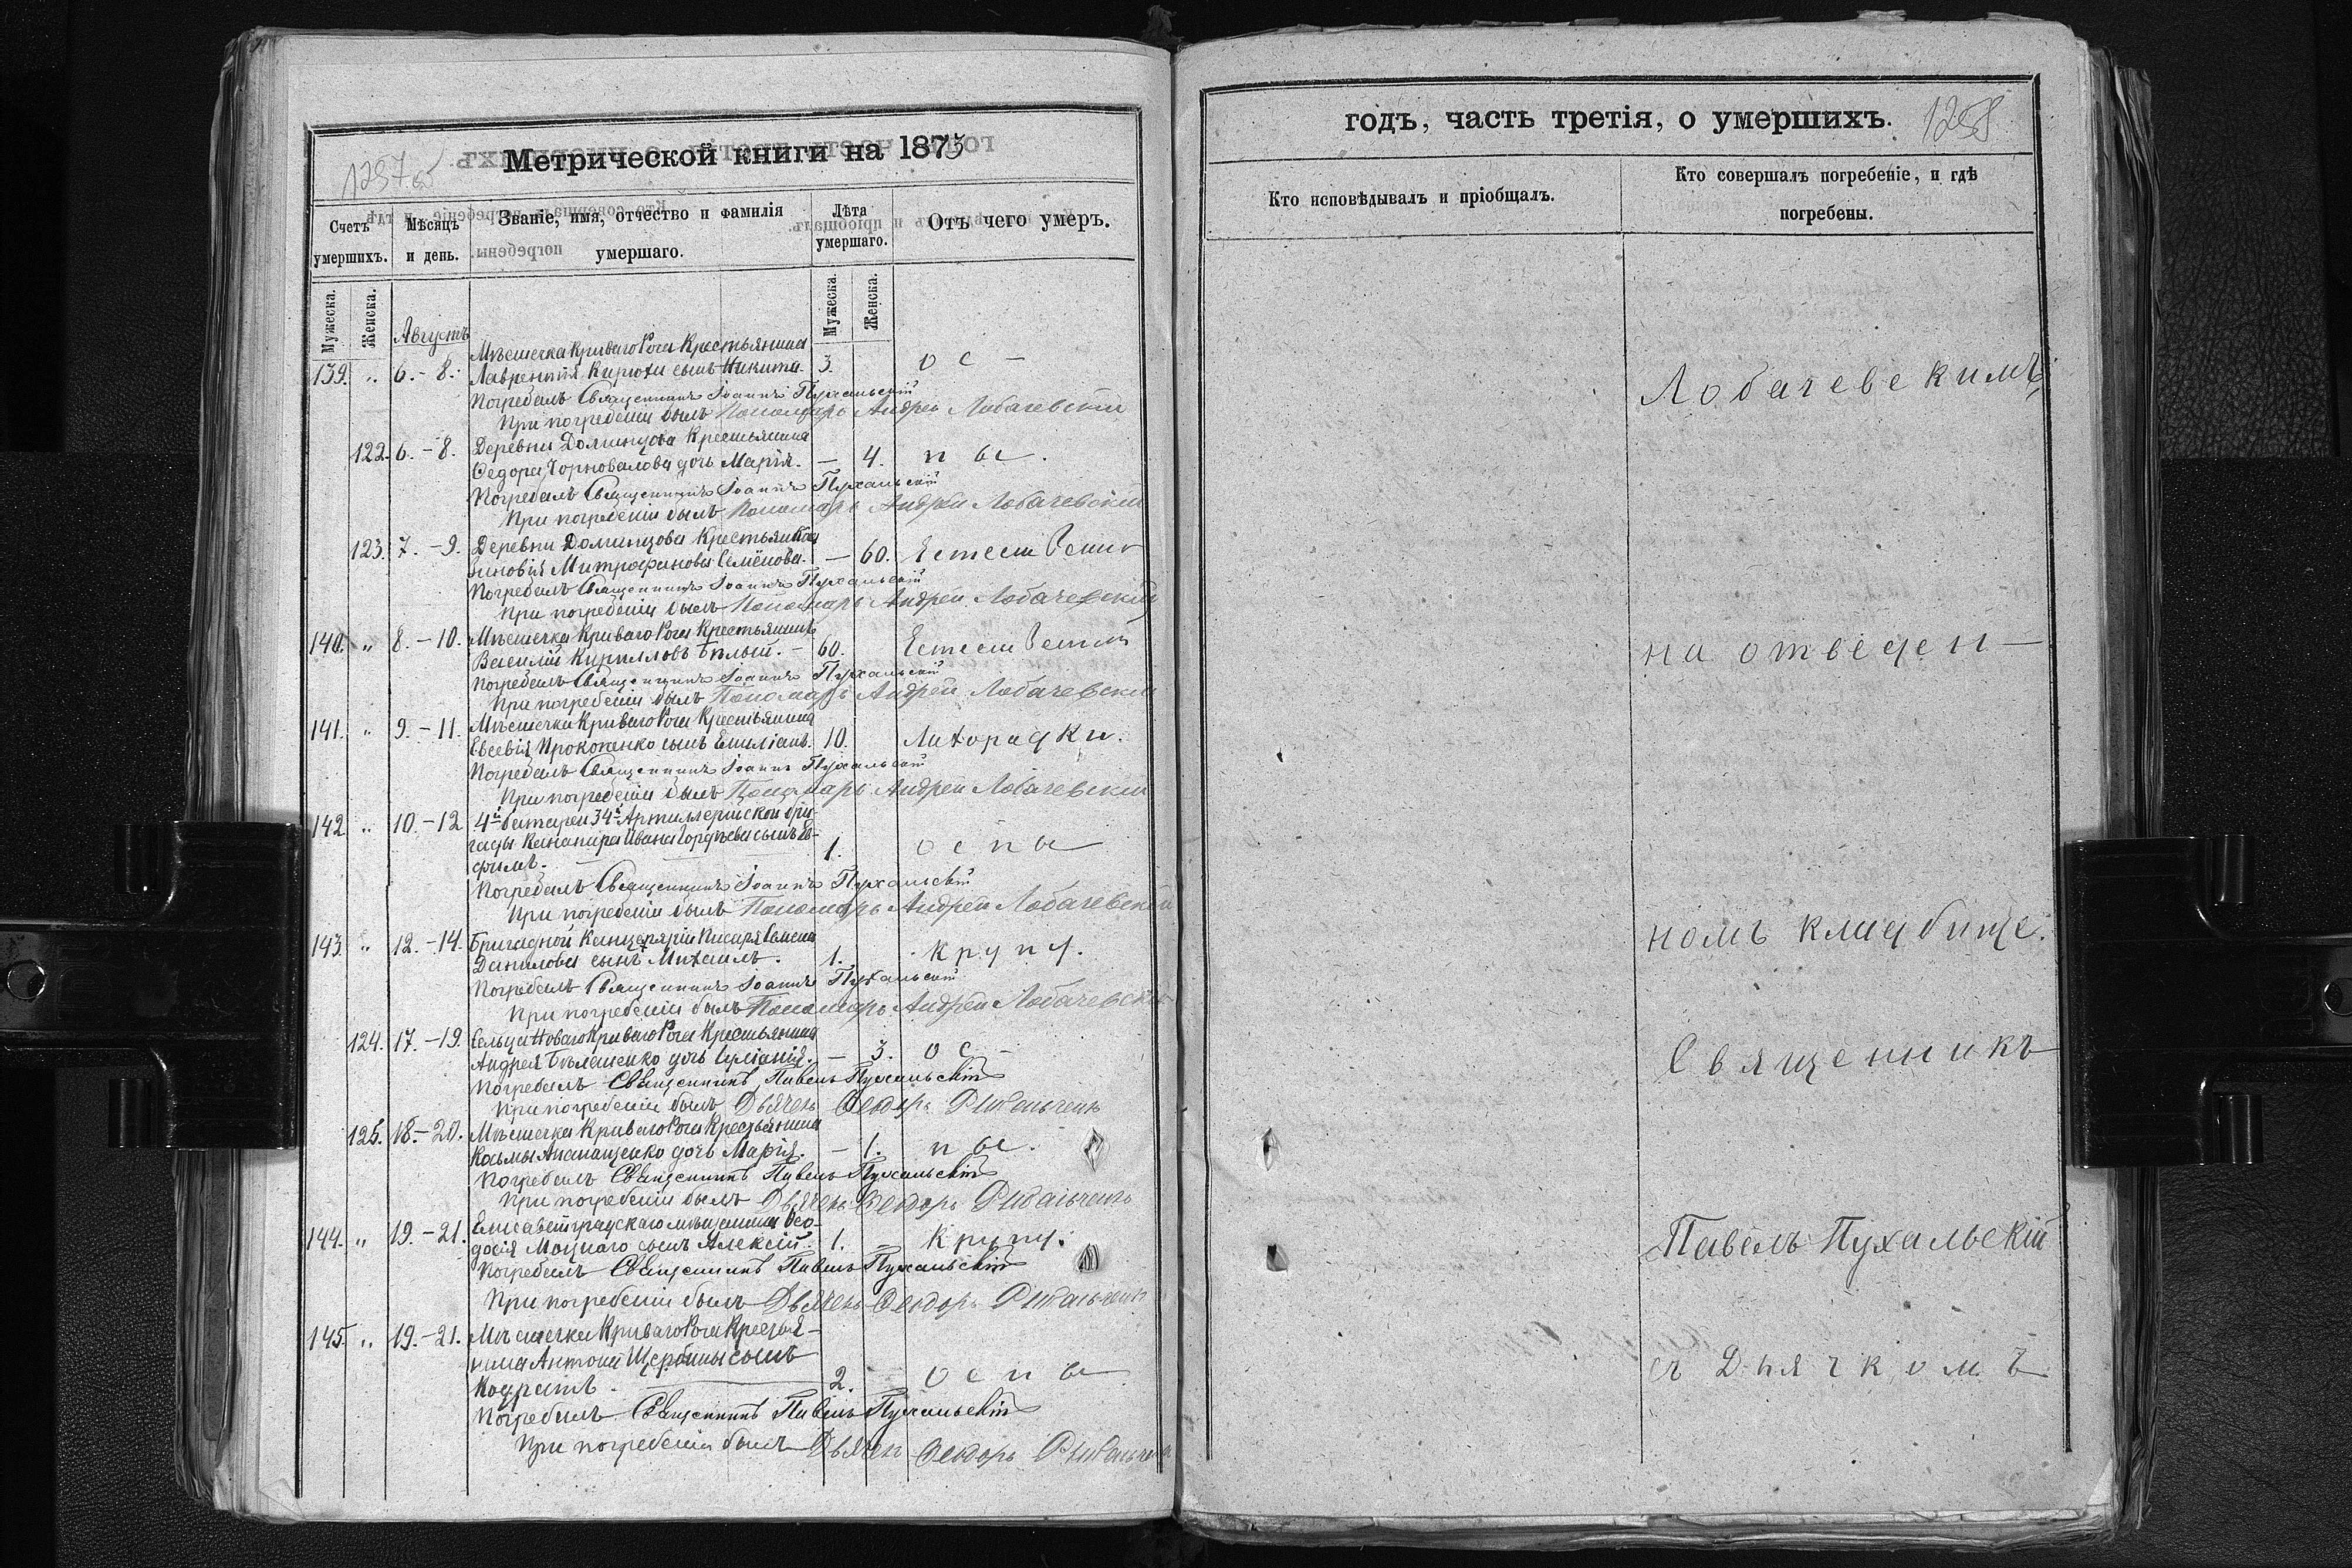 Метрической книги на 1875
1287 об
Счетъ умершихъ.
Мѣсяцъ и день.
Званіе, имя, отчество и фамилія умершаго.
Лѣта умершаго.
Отъ чего умеръ.
Мужеска.
Женска.
Мужеска.
Женска.
Августъ
Мѣстечка Криваго Рога Крестьянина
139. „ 6.-8. Лаврентія Кирюхи сынъ Никита. 3. ос-
Погребалъ Священникъ Іоаннъ Пухальскій
При погребеніи былъ Пономарь Андрей Лобачевскій
122. 6.-8. Деревни Долинцова Крестьянина
Федора Горновалова дочь Марія. — 4. пы.
Погребалъ Священникъ Іоаннъ Пухальскій
При погребеніи былъ Пономарь Андрей Лобачевскій
123. 7.-9. Деревни Долинцова Крестьянка
Зиновія Митрофанова Семёнова. — 60. Естествен
Погребалъ Священникъ Іоаннъ Пухальскій
При погребеніи былъ Пономарь Андрей Лобачевскій
140. „ 8.-10. Мѣстечка Криваго Рога Крестьянинъ
Василій Кирилловъ Бѣлый. - 60. Естествен
Погребалъ Священникъ Іоаннъ Пухальскій
При погребеніи былъ Пономарь Андрей Лобачевскій
141. „ 9.-11. Мѣстечка Криваго Рога Крестьянина
Евсевія Прокопенко сынъ Емиліанъ. 10. Лихорадки.
Погребалъ Священникъ Іоаннъ Пухальскій
При погребеніи былъ Пономарь Андрей Лобачевскій
142 „ 10.-12 4й батареи 34й Артиллерійской бри-
гады Канонира Ивана Гордѣева сынъ Еф-
фимъ. — 1. оспы
Погребалъ Священникъ Іоаннъ Пухальскій
При погребеніи былъ Пономарь Андрей Лобачевскій
143. „ 12.-14. Бригадной Канцеляріи Писаря Семена
Данилова сынъ Михаилъ. 1. крупу.
Погребалъ Священникъ Іоаннъ Пухальскій
При погребеніи былъ Пономарь Андрей Лобачевскій
124. 17.-19. Сельца Новаго Криваго Рога Крестьянина
Андрея Бѣлашенко дочь — 3. ос-
Погребалъ Священникъ Павелъ Пухальскій
При погребеніи былъ Дьячекъ Ѳеодоръ
125. 18.-20. Мѣстечка Криваго Рога Крестьянина
Косьмы дочь Марія. — 1. пы.
Погребалъ Священникъ Павелъ Пухальскій
При погребеніи былъ Дьячекъ Ѳеодоръ
144. „ 19.-21. Елисаветградскаго мѣщанина Ѳео-
досія Моцнаго сынъ Алексій. 1. - Крупу.
Погребалъ Священникъ Павелъ Пухальскій
При погребеніи былъ Дьячекъ Ѳеодоръ
145. „ 19.-21. Мѣстечка Криваго Рога Крестья-
нина Антона Щербины сынъ
Кодратъ. — 2. оспы
Погребалъ Священникъ Павелъ Пухальскій
При погребеніи былъ Дьячекъ Ѳеодоръ
годъ, часть третія, о умершихъ.
1288
Кто исповѣдывалъ и пріобщалъ.
Кто совершалъ погребеніе, и гдѣ погребены.
Лобачевскимъ
на отведен-
номъ кладбище.
Священникъ
Павелъ Пухальскій
съ Дьячкомъ